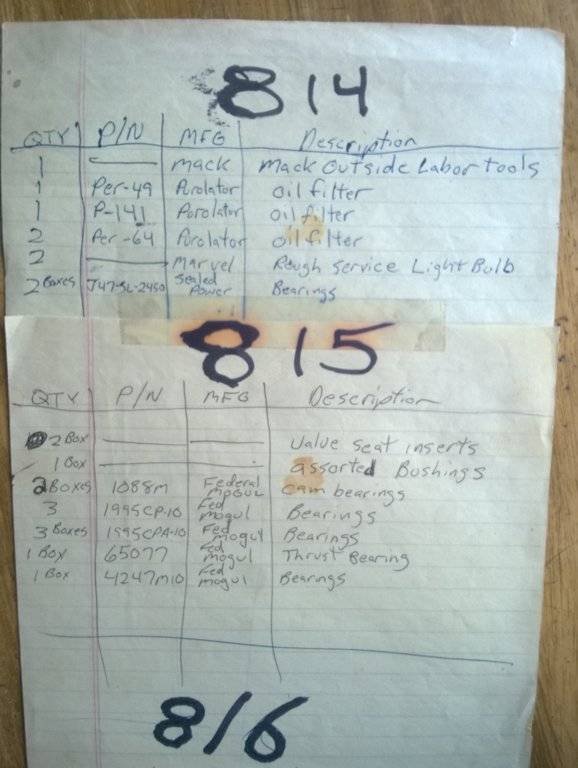 814
QTY P/N MFG Description
1 — Mack Mack Outside Labor Tools
1 Per-49 Purolator oil filter
1 P-141 Purolator oil filter
2 Per-64 Purolator oil filter
2 — Marvel Rough Service Light Bulb
2 Boxes J47-SL-2450 Sealed Power Bearings
815
QTY P/N MFG Description
2 Box — — Value seat inserts
1 Box — — assorted Bushings
2 Boxes 1088M Federal Mogul cam bearings
3 1995CP-10 Fed Mogul Bearings
3 Boxes 1995CPA-10 Fed Mogul Bearings
1 Box 65077 Fed Mogul Thrust Bearing
1 Box 4247M10 Fed Mogul Bearings
816